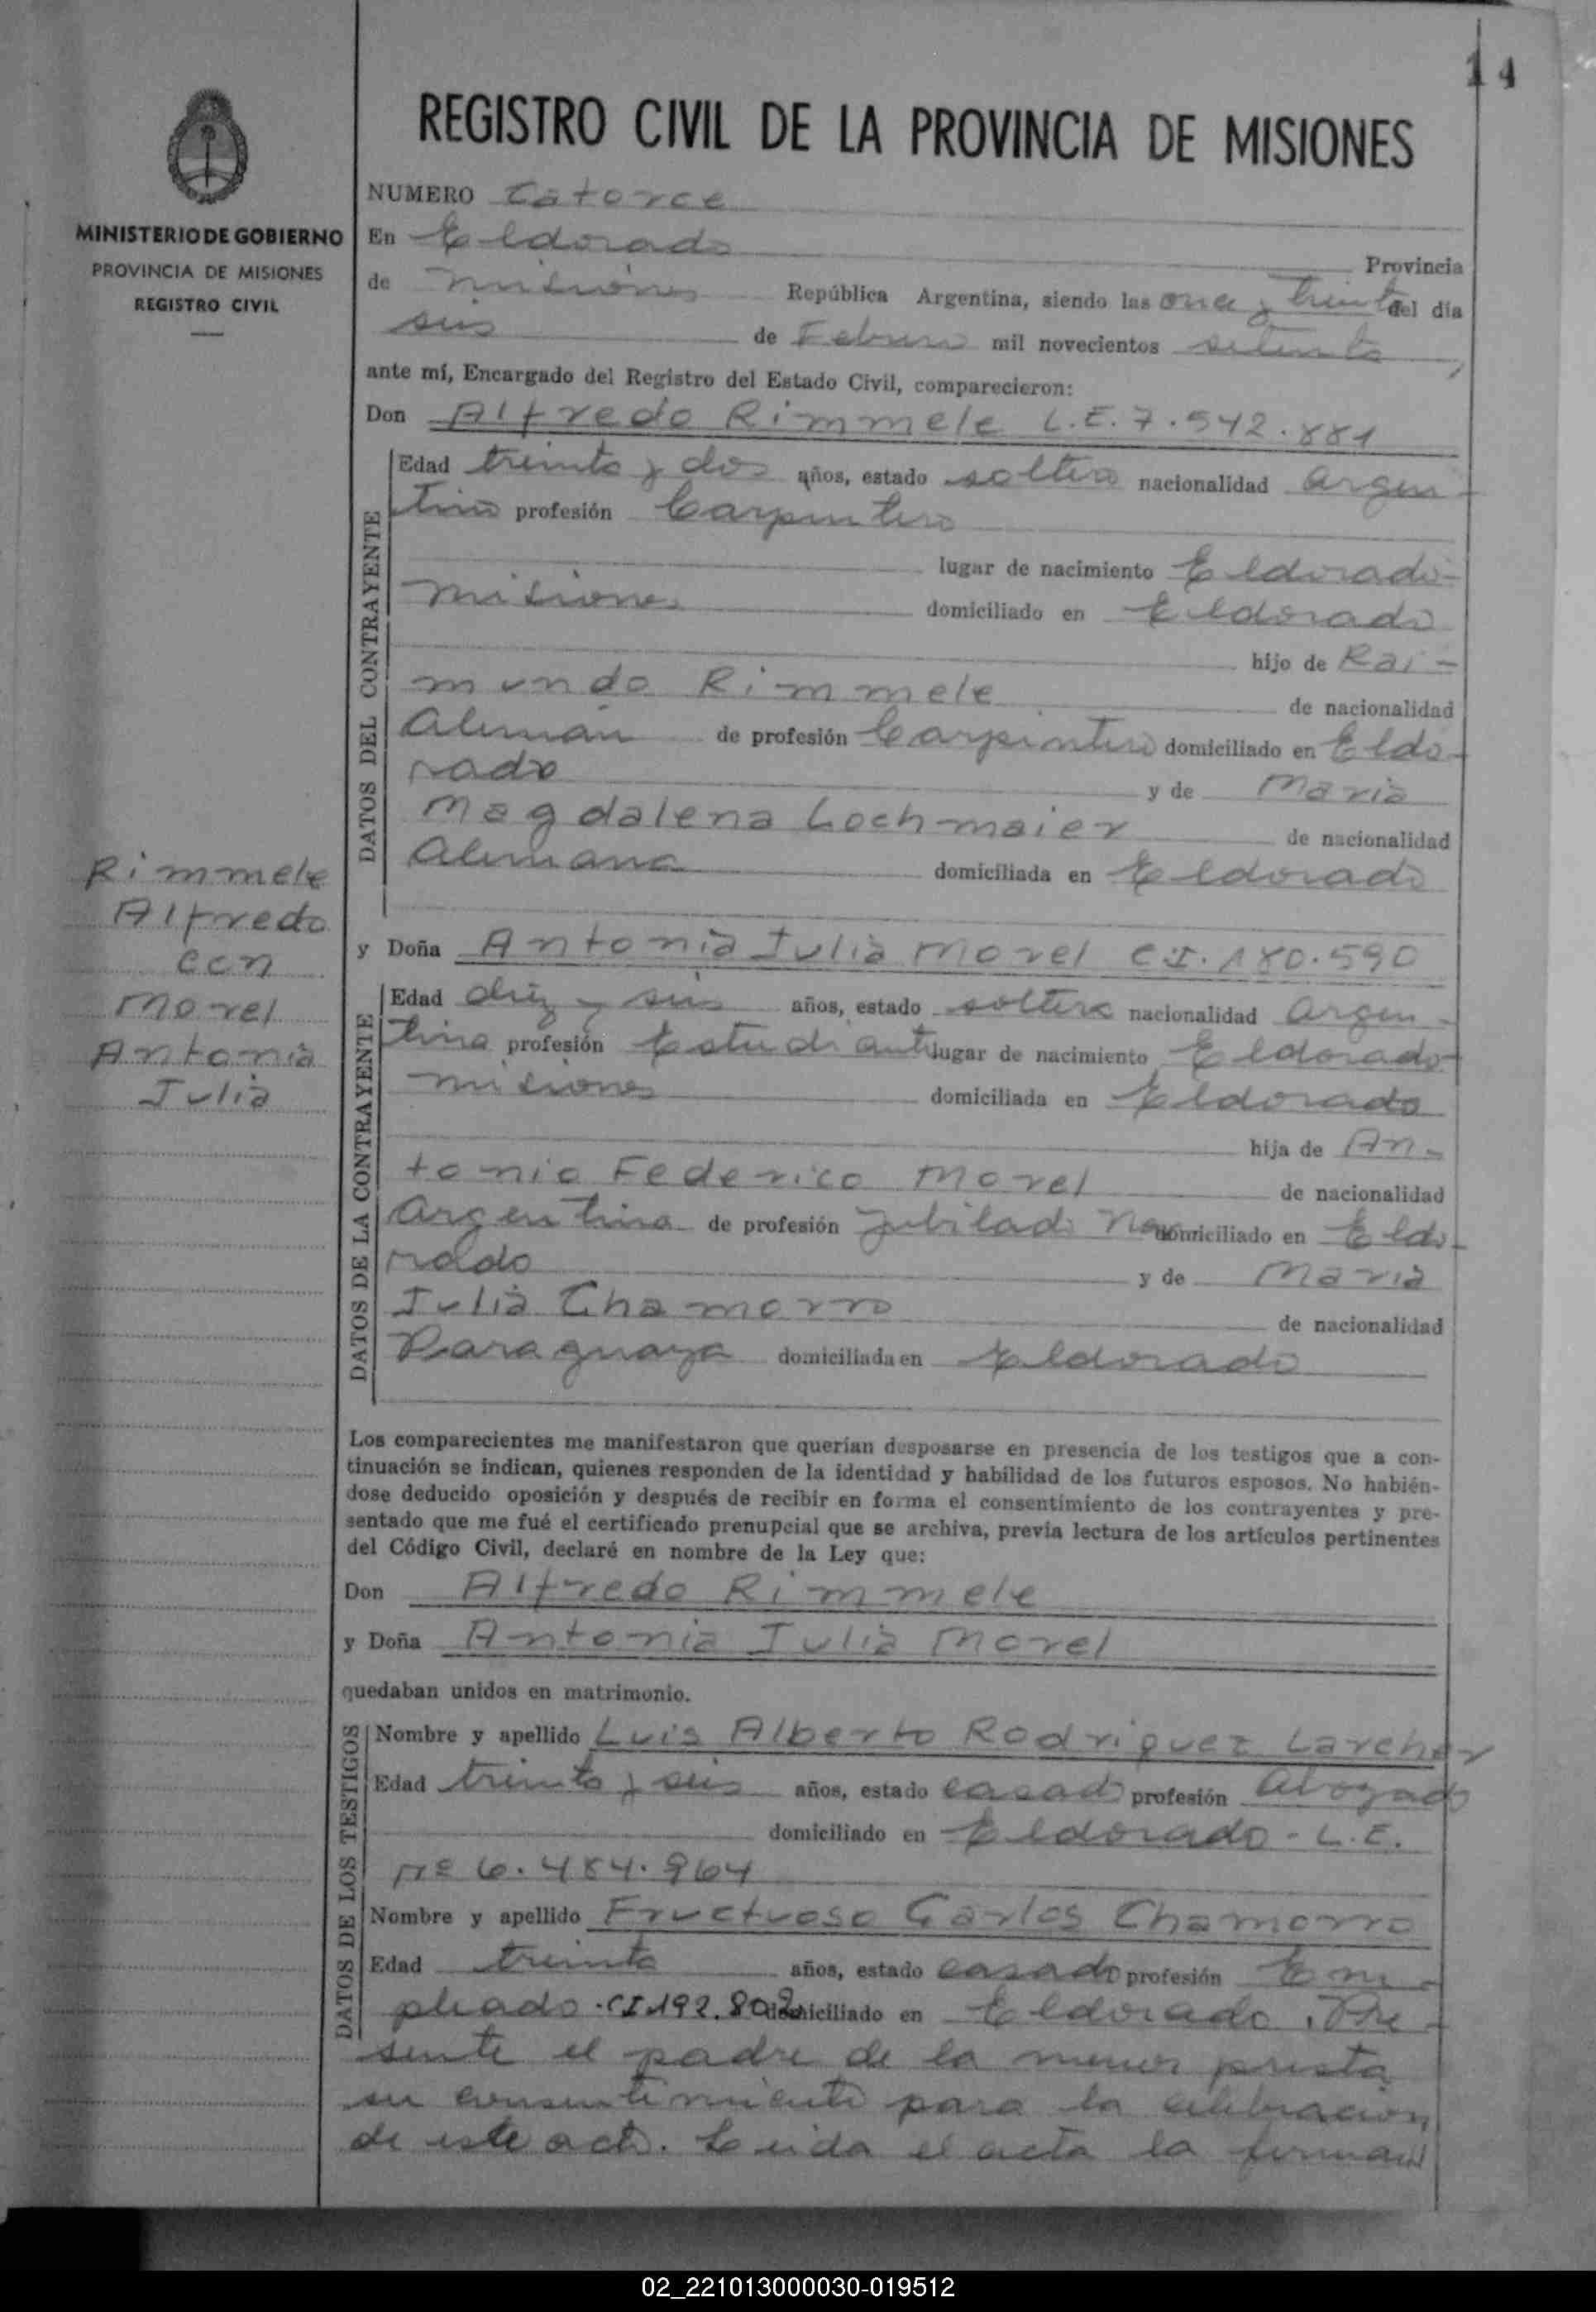 14
REGISTRO CIVIL DE LA PROVINCIA DE MISIONES
MINISTERIO DE GOBIERNO
PROVINCIA DE MISIONES
REGISTRO CIVIL
NUMERO Catorce
En Eldorado Provincia
de Misiones República Argentina, siendo las once y treinta del día
seis de Febrero mil novecientos setenta,
ante mí, Encargado del Registro del Estado Civil, comparecieron:
Don Alfredo Rimmele L.E. 7.542.881
DATOS DEL CONTRAYENTE
Edad treinta y dos años, estado soltero nacionalidad argen-
tino profesión Carpintero
lugar de nacimiento Eldorado-
Misiones domiciliado en Eldorado
hijo de Rai-
mundo Rimmele de nacionalidad
Alemán de profesión Carpintero domiciliado en Eldo-
rado y de Maria
Magdalena Lochmaier de nacionalidad
Alemana domiciliada en Eldorado
Rimmele
Alfredo
con
Morel
Antonia
Julia
y Doña Antonia Julia Morel C.I. 180.590
DATOS DE LA CONTRAYENTE
Edad diez y seis años, estado soltera nacionalidad argen-
tina profesión Estudiante lugar de nacimiento Eldorado-
Misiones domiciliada en Eldorado
hija de An-
tonio Federico Morel de nacionalidad
Argentina de profesión Jubilado domiciliado en Eldo-
rado y de Maria
Julia Chamorro de nacionalidad
Paraguaya domiciliada en Eldorado
Los comparecientes me manifestaron que querían desposarse en presencia de los testigos que a con-
tinuación se indican, quienes responden de la identidad y habilidad de los futuros esposos. No habién-
dose deducido oposición y después de recibir en forma el consentimiento de los contrayentes y pre-
sentado que me fué el certificado prenupcial que se archiva, previa lectura de los artículos pertinentes
del Código Civil, declaré en nombre de la Ley que:
Don Alfredo Rimmele
y Doña Antonia Julia Morel
quedaban unidos en matrimonio.
DATOS DE LOS TESTIGOS
Nombre y apellido Luis Alberto Rodriguez Larcher
Edad treinta y seis años, estado casado profesión Abogado
domiciliado en Eldorado - L.E.
Nº 6.484.964
Nombre y apellido Fructuoso Carlos Chamorro
Edad treinta años, estado casado profesión Em-
pleado. C.I. 192.802 domiciliado en Eldorado. Pre-
sente el padre de la menor presta
su consentimiento para la celebracion
de este acto. Leida el acta la firman
02_221013000030-019512